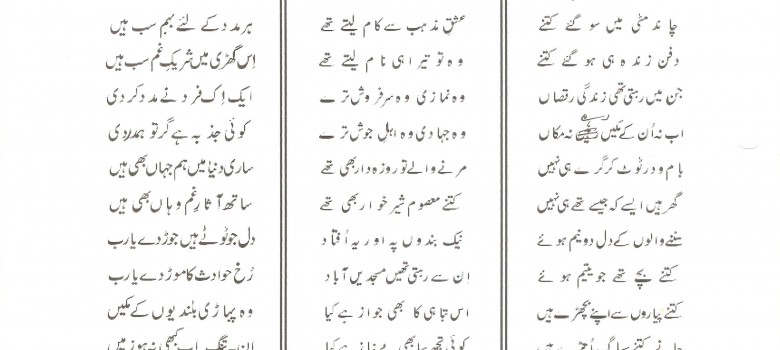 چاند مٹی میں سو گئے کتنے
دفن زندہ ہی ہو گئے کتنے
جن میں رہتی تھی زندگی رقصاں
اب نہ اُن کے مکیں نہ مکاں
بام و در ٹوٹ کر گرے ہی نہیں
گھر ہیں ایسے کہ جیسے تھے ہی نہیں
سننے والوں کے دل دو نیم ہوئے
کتنے بچے تھے جو یتیم ہوئے
کتنے پیاروں سے اپنے بچھڑے ہیں
جانے کتنے سہاگ اُجڑے ہیں
عشقِ مذہب سے کام لیتے تھے
وہ تو تیرا ہی نام لیتے تھے
وہ نمازی وہ سرفروش ترے
وہ جہادی وہ اہلِ جوش ترے
مرنے والے تو روزہ دار بھی تھے
کتنے معصوم شیر خوار بھی تھے
نیک بندوں پہ اور یہ اُفتاد
اِن سے رہتی تھیں مسجدیں آباد
اس تباہی کا بھی جواز ہے کیا
کوئی تجھ سا بھی بے نیاز ہے کیا
بہرِ مدد کے لئے بہم سب ہیں
اِس گھڑی میں شریکِ غم سب ہیں
ایک اِک فرد نے مدد کر دی
کوئی جذبہ ہے گر تو ہمدردی
ساری دنیا میں ہم جہاں بھی ہیں
ساتھ آثارِ غم وہاں بھی ہیں
دل جو ٹوٹے ہیں جوڑ دے یارب
رُخ حوادث کا موڑ دے یارب
وہ پہاڑی بلندیوں کے مکیں
ان پہ تنگ اب کبھی نہ ہو زمیں